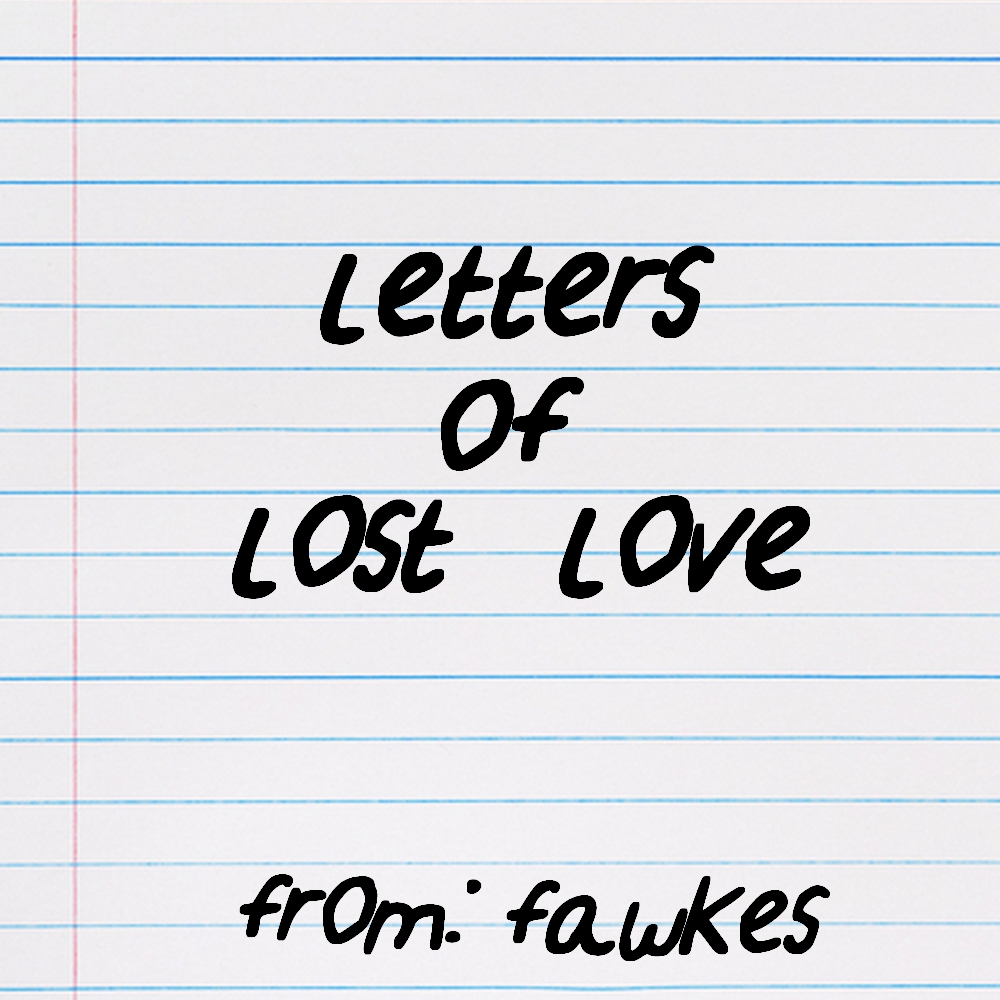 Letters
Of
Lost Love
from: fawkes